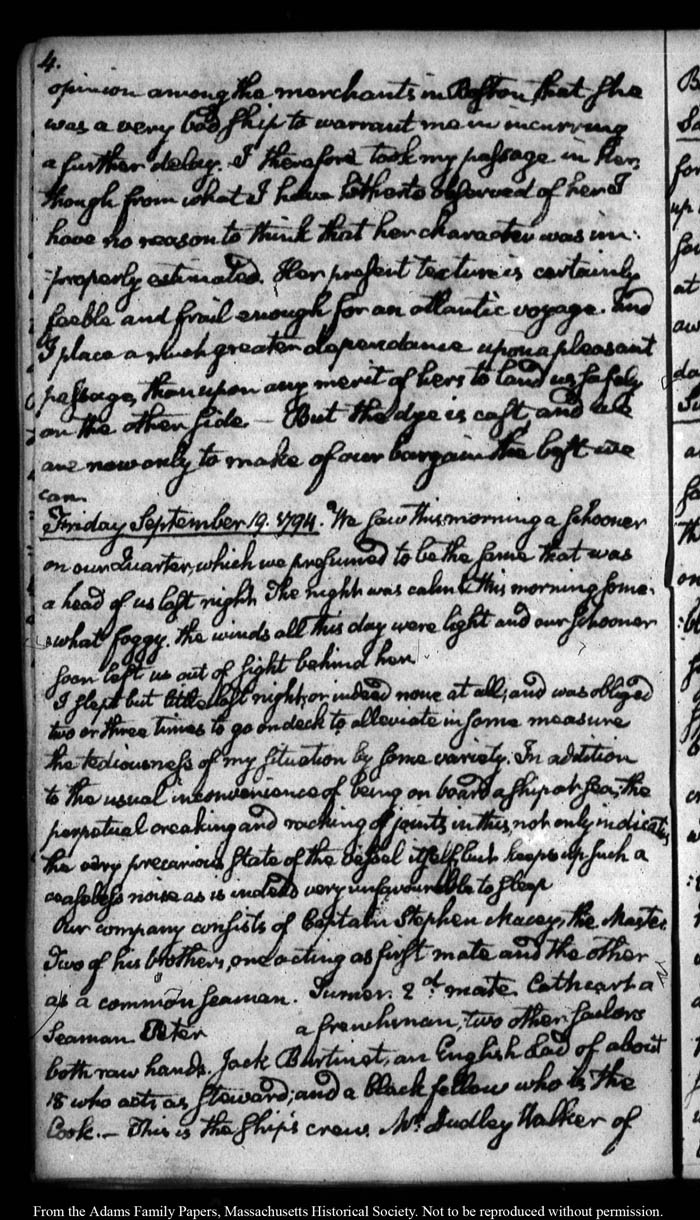 4.
opinion among the merchants in Boston, that she
was a very bad ship to warrant me in incurring
a further delay. I therefore took my passage in her,
though from what I have hitherto observed of her I
have no reason to think that her character was im-
-properly estimated. Her present texture is certainly
feeble and frail enough for an atlantic voyage. And
I place a much greater dependance upon a pleasant
passage, than upon any merit of hers to land us safely
on the other side. — But the dye is cast and we
are now only to make of our bargain the best we
can.
Friday September 19. 1794. We saw this morning a schooner
on our Quarter, which we presumed to be the same that was
a head of us last night. The night was calm & this morning some-
-what foggy. the winds all this day were light and our schooner
soon left us out of sight behind her.
I slept but little last night, or indeed none at all, and was obliged
two or three times to go on deck to alleviate in some measure
the tediousness of my situation by some variety. In addition
to the usual inconvenience of being on board a ship at sea, the
perpetual creaking and racking of joints in this, not only indicates
the very precarious state of the vessel itself, but keeps up such a
ceaseless noise as is indeed very unfavourable to sleep
Our company consists of Captain Stephen Macey, the Master
Two of his brothers, one acting as first mate and the other
as a common seaman. Turner. 2d. mate. Cathcart a
Seaman Peter a frenchman, two other sailors
both raw hands. Jack Burtinet, an English Lad of about
18 who acts as steward; and a black fellow who is the
Cook. — This is the ship's crew. Mr. Dudley Walker of
From the Adams Family Papers, Massachusetts Historical Society. Not to be reproduced without permission.